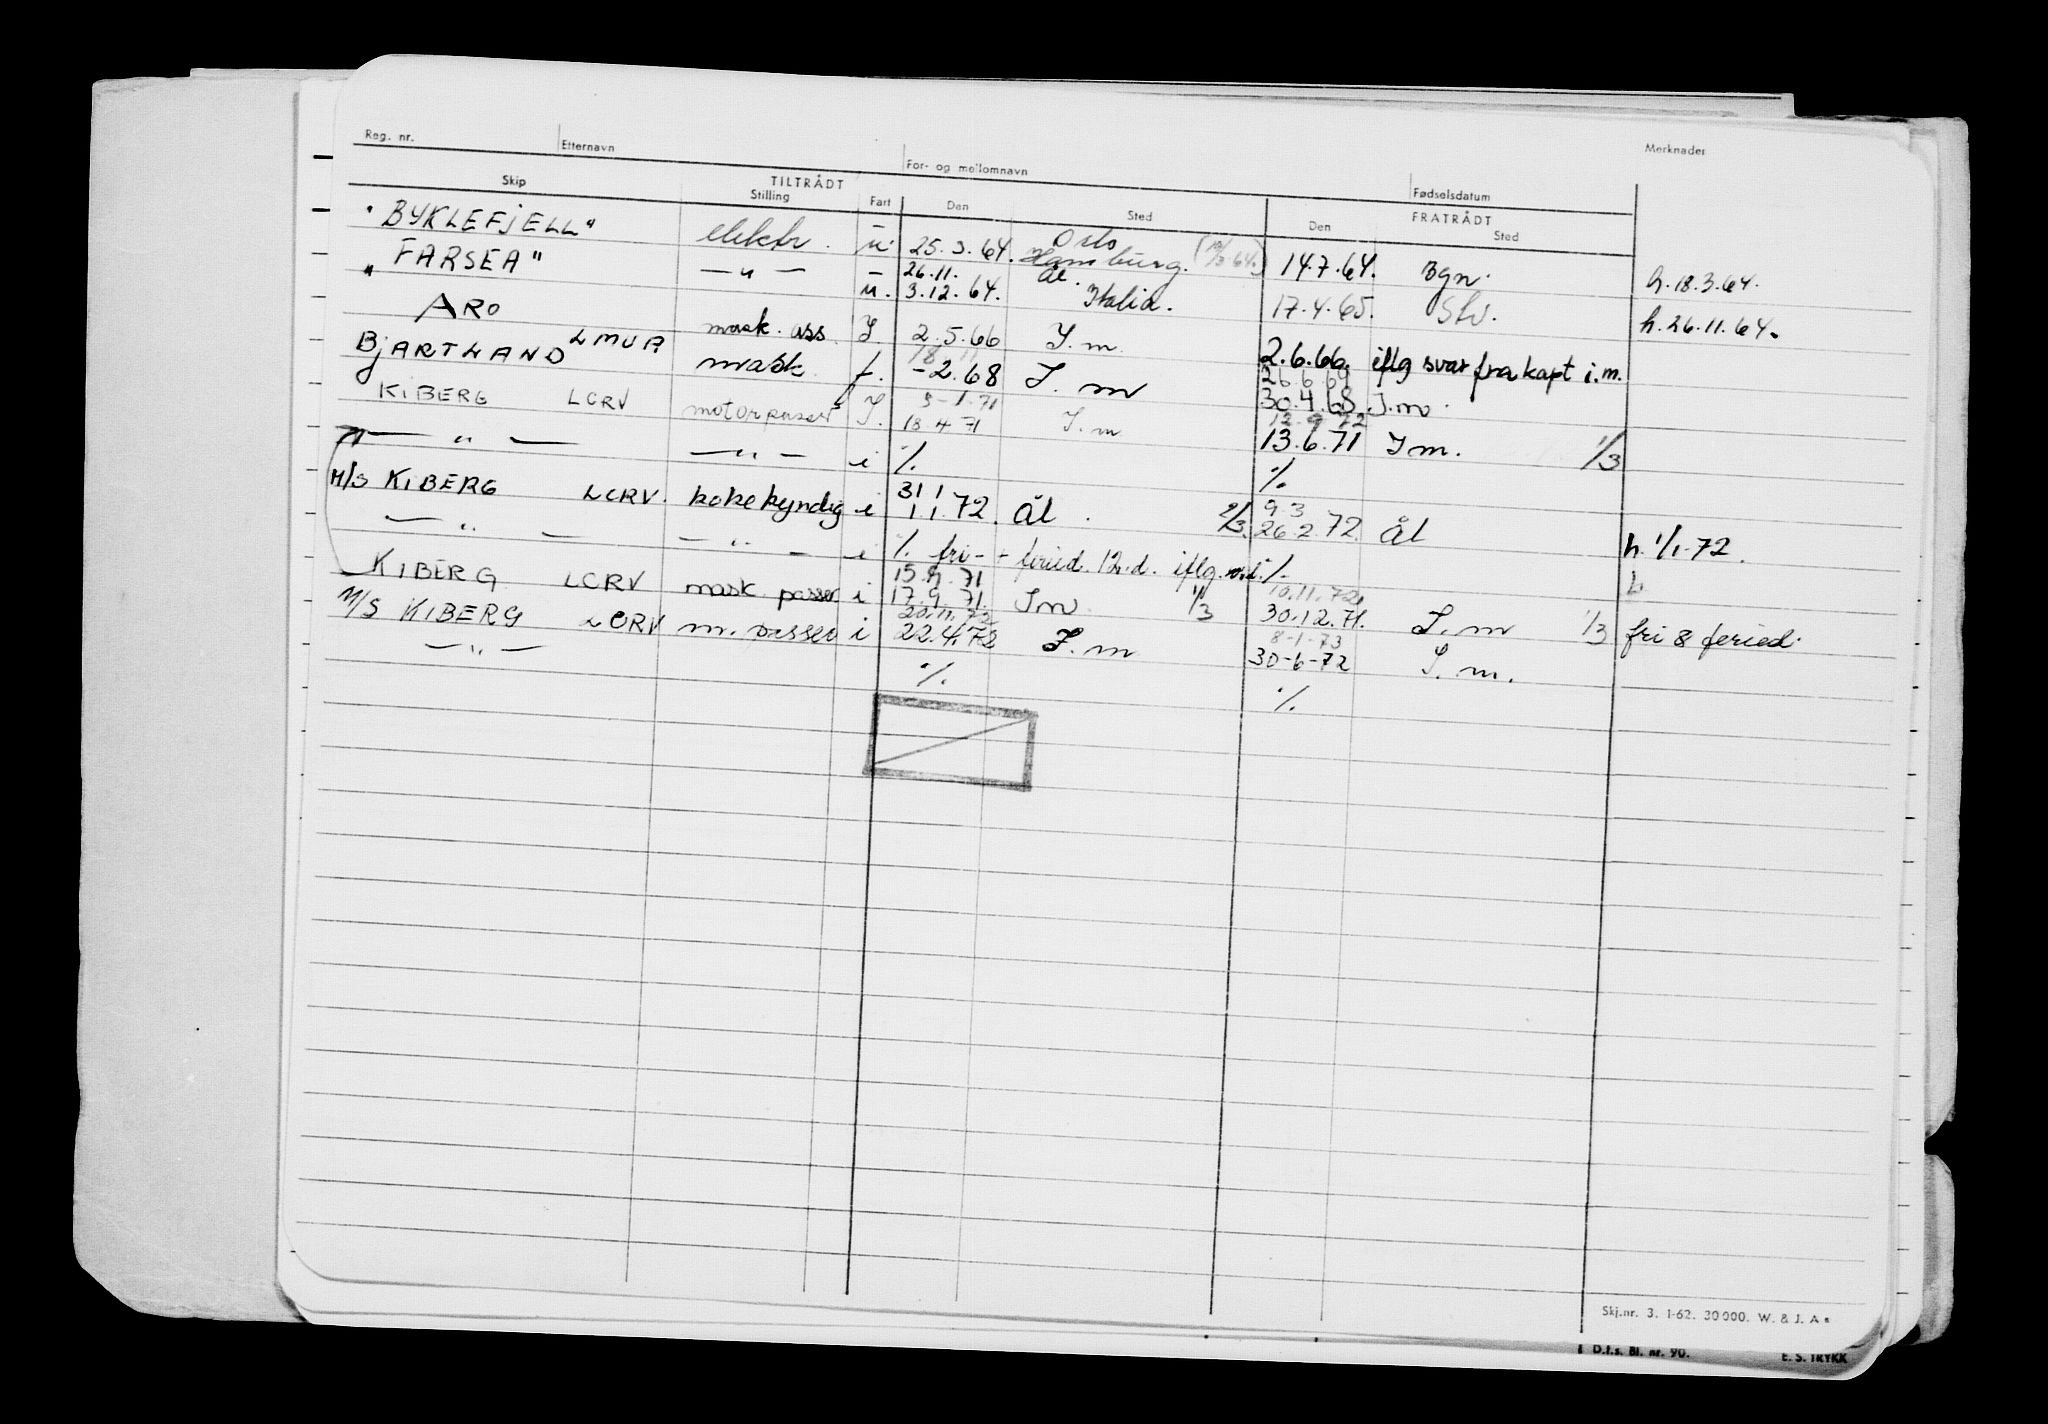 Reg. nr. Etternavn For- og mellomnavn Fødselsdatum Merknader
Skip TILTRÅDT FRATRÅDT
Stilling Fart Den Sted Den Sted
"BYKLEFJELL" elektr. u. 25.3.64. Oslo Hamburg. 14.7.64. Bgn. h. 18.3.64.
"FARSEA" — " — 26.11. Ål.
u. 3.12.64. Italia. 17.4.65. Stv. h. 26.11.64.
ARO mask. ass. I. 2.5.66 I.m 2.6.66. iflg svar fra kapt i.m.
BJARTLAND LMUA mask. f. -2.68 I.m 30.4.68 I.m.
26.6.69
KIBERG LCRV motorpasser I. 18.4.71 I.m 13.6.71 I m. 1/3
5-1.71
— " — — " — i % %
M/S KIBERG LCRV. kokekyndig i 31 1
1.1.72. Ål. 2/3. 9 3
26.2.72. Ål h. 1/1-72.
— " — — " — i % fri - - feried. 12.d. iflg. %
KIBERG LCRV mask. passer i 15.9.71
17.9.71. I m 1/3 10.11.72
30.12.71. I.m 1/3 fri 8 feried.
M/S KIBERG LCRV m. passer i 20.11.72
22.4.72 I.m 8-1-73
30-6-72 I.m.
— " — % %
Skj.nr. 3. 1-62. 30000. W. & J. A s
D.f.s. Bl. nr. 90. E. S. TRYKK